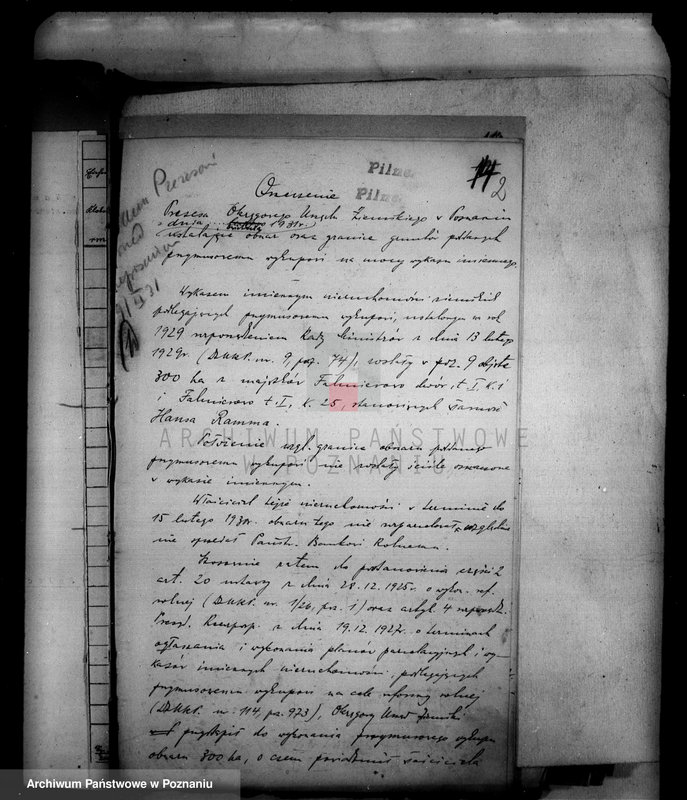 Pilne.
Pilne.
2
Orzeczenie
Prezesa Okręgowego Urzędu Ziemskiego w Poznaniu
z dnia 1931r.
ustalające obszar oraz granice gruntów podległych
przymusowemu wykupowi na mocy wykazu imiennego.
Wykazem imiennym nieruchomości ziemskich
podlegających przymusowemu wykupowi, ustalonym na rok
1929 rozporządzeniem Rady Ministrów z dnia 13 lutego
1929r. (Dz.U.R.P. nr. 9, poz. 74), zostały w poz. 9 objęte
300 ha z majątków Falmierowo dwór, t. I, k. 1
i Falmierowo t. I, k. 25, stanowiących własność
Hansa Ramma.
Położenie wzgl. granice obszaru podległego
przymusowemu wykupowi nie zostały ściśle oznaczone
w wykazie imiennym.
Właściciel tejże nieruchomości w terminie do
15 lutego 1930r. obszaru tego nie rozparcelował, względnie
nie sprzedał Państw. Bankowi Rolnemu.
zatem do postanowienia części 2
art. 20 ustawy z dnia 28.12.1925r. o wykon. ref.
rolnej (Dz.U.R.P. nr. 1/26, poz. 1) oraz artyk. 4 rozporządz.
Prezyd. Rzeczyp. z dnia 19.12.1927r. o terminach
ogłaszania i wykonania planów parcelacyjnych i wy-
kazów imiennych nieruchomości, podlegających
przymusowemu wykupowi na cele reformy rolnej
(Dz.U.R.P. nr. 114, poz. 973), Okręgowy Urząd Ziemski
przystąpił do wykonania przymusowego wykupu
obszaru 300 ha, o czem powiadomił właściciela
ARCHIWUM PAŃSTWOWE
W POZNANIU
Archiwum Państwowe w Poznaniu